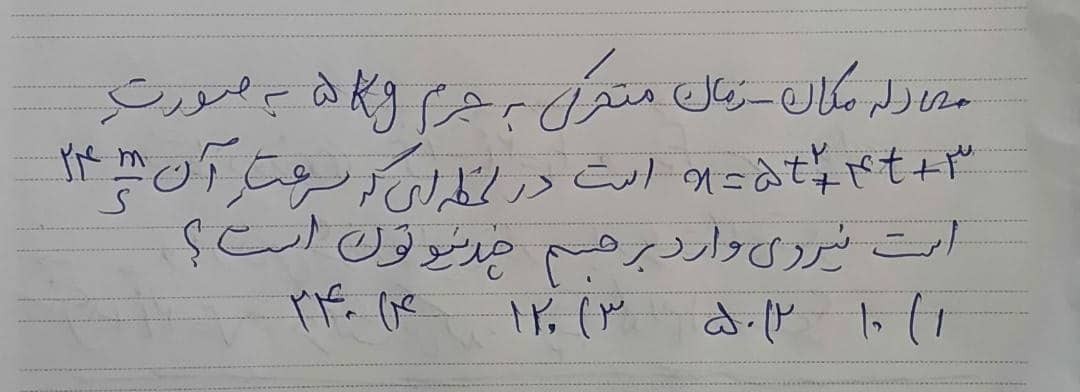 معادله مکان-زمان متحرکی به جرم ۵kg به صورتِ
x=۵t²+۴t+۳ است در لحظه‌ای که سرعتِ آن ۲۴ m/s
است نیروی وارد بر جسم چند نیوتون است؟
۱) ۱۰ ۲) ۵۰ ۳) ۱۲۰ ۴) ۲۴۰